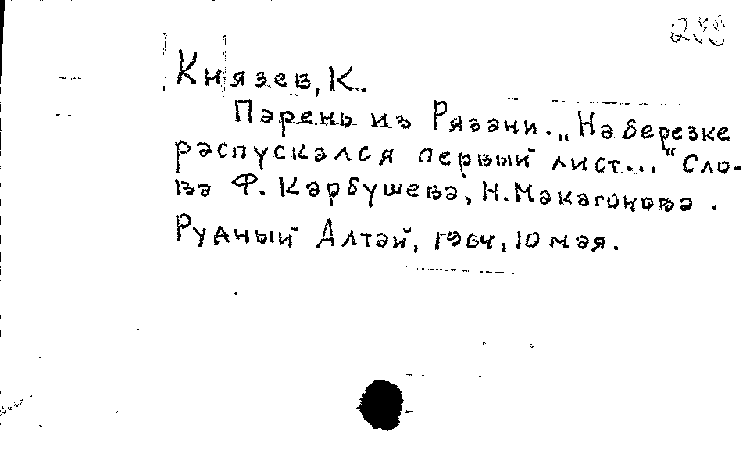 299
Князев, К.
Парень из Рязани. „На березке
распускался первый лист..." Сло-
ва Ф. Карбушева, Н. Макагонова.
Рудный Алтай, 1964, 10 мая.